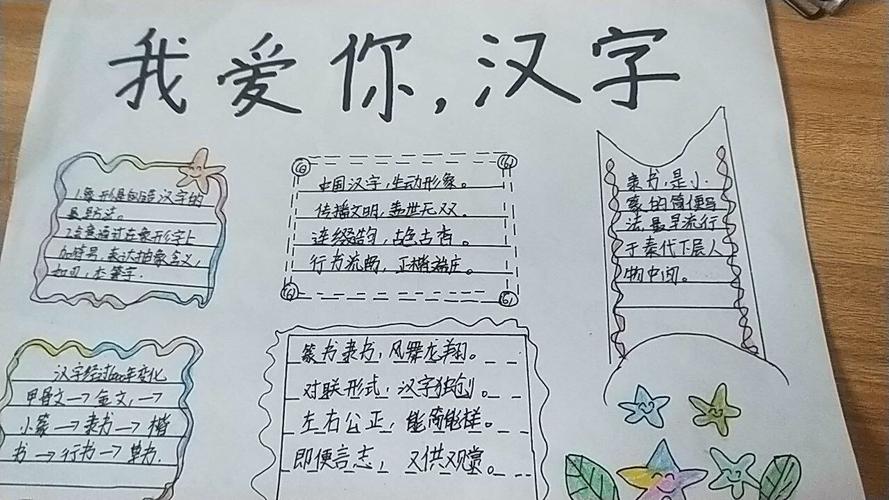 我爱你，汉字
1象形是创造汉字的
最早方法。
2指事通过在象形字上
加符号，表达抽象含义，
如刃，本等字。
中国汉字，生动形象。
传播文明，盖世无双。
连缀铭句，古色古香。
行书流畅，正楷端庄。
隶书，是小
篆的简便写
法最早流行
于秦代下层人
物中间。
汉字经过6000年变化
甲骨文→金文，→
小篆→隶书→楷
书→行书→草书.
篆书隶书，风舞龙翔。
对联形式，汉字独创。
左右公正，能简能详。
即便言志，又供观赏。